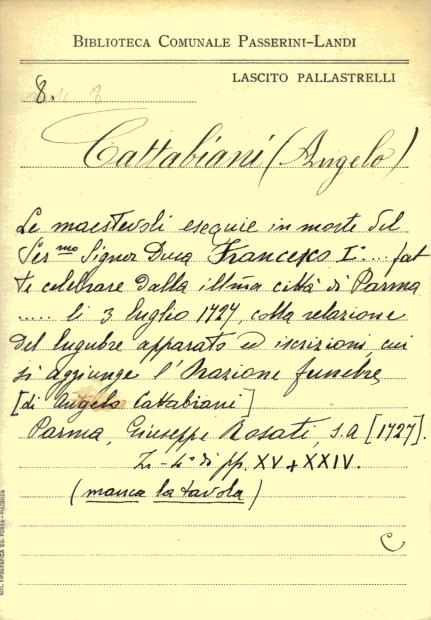 BIBLIOTECA COMUNALE PASSERINI-LANDI
LASCITO PALLASTRELLI
8.
Cattabiani (Angelo)
Le maestevoli esequie in morte del
Ser.mo Signor Duca Francesco I° .... fat
te celebrare dalla ill̃ma città di Parma
..... li 3 luglio 1727, colla relazione
del lugubre apparato ed iscrizioni, cui
si aggiunge l'Orazione funebre
[di Angelo Cattabiani]
Parma, Giuseppe Rosati, s.a [1727].
in-4° di pp. XV + XXIV.
(manca la tavola)
C
SOC. TIPOGRAFICA ED. PORTA - PIACENZA